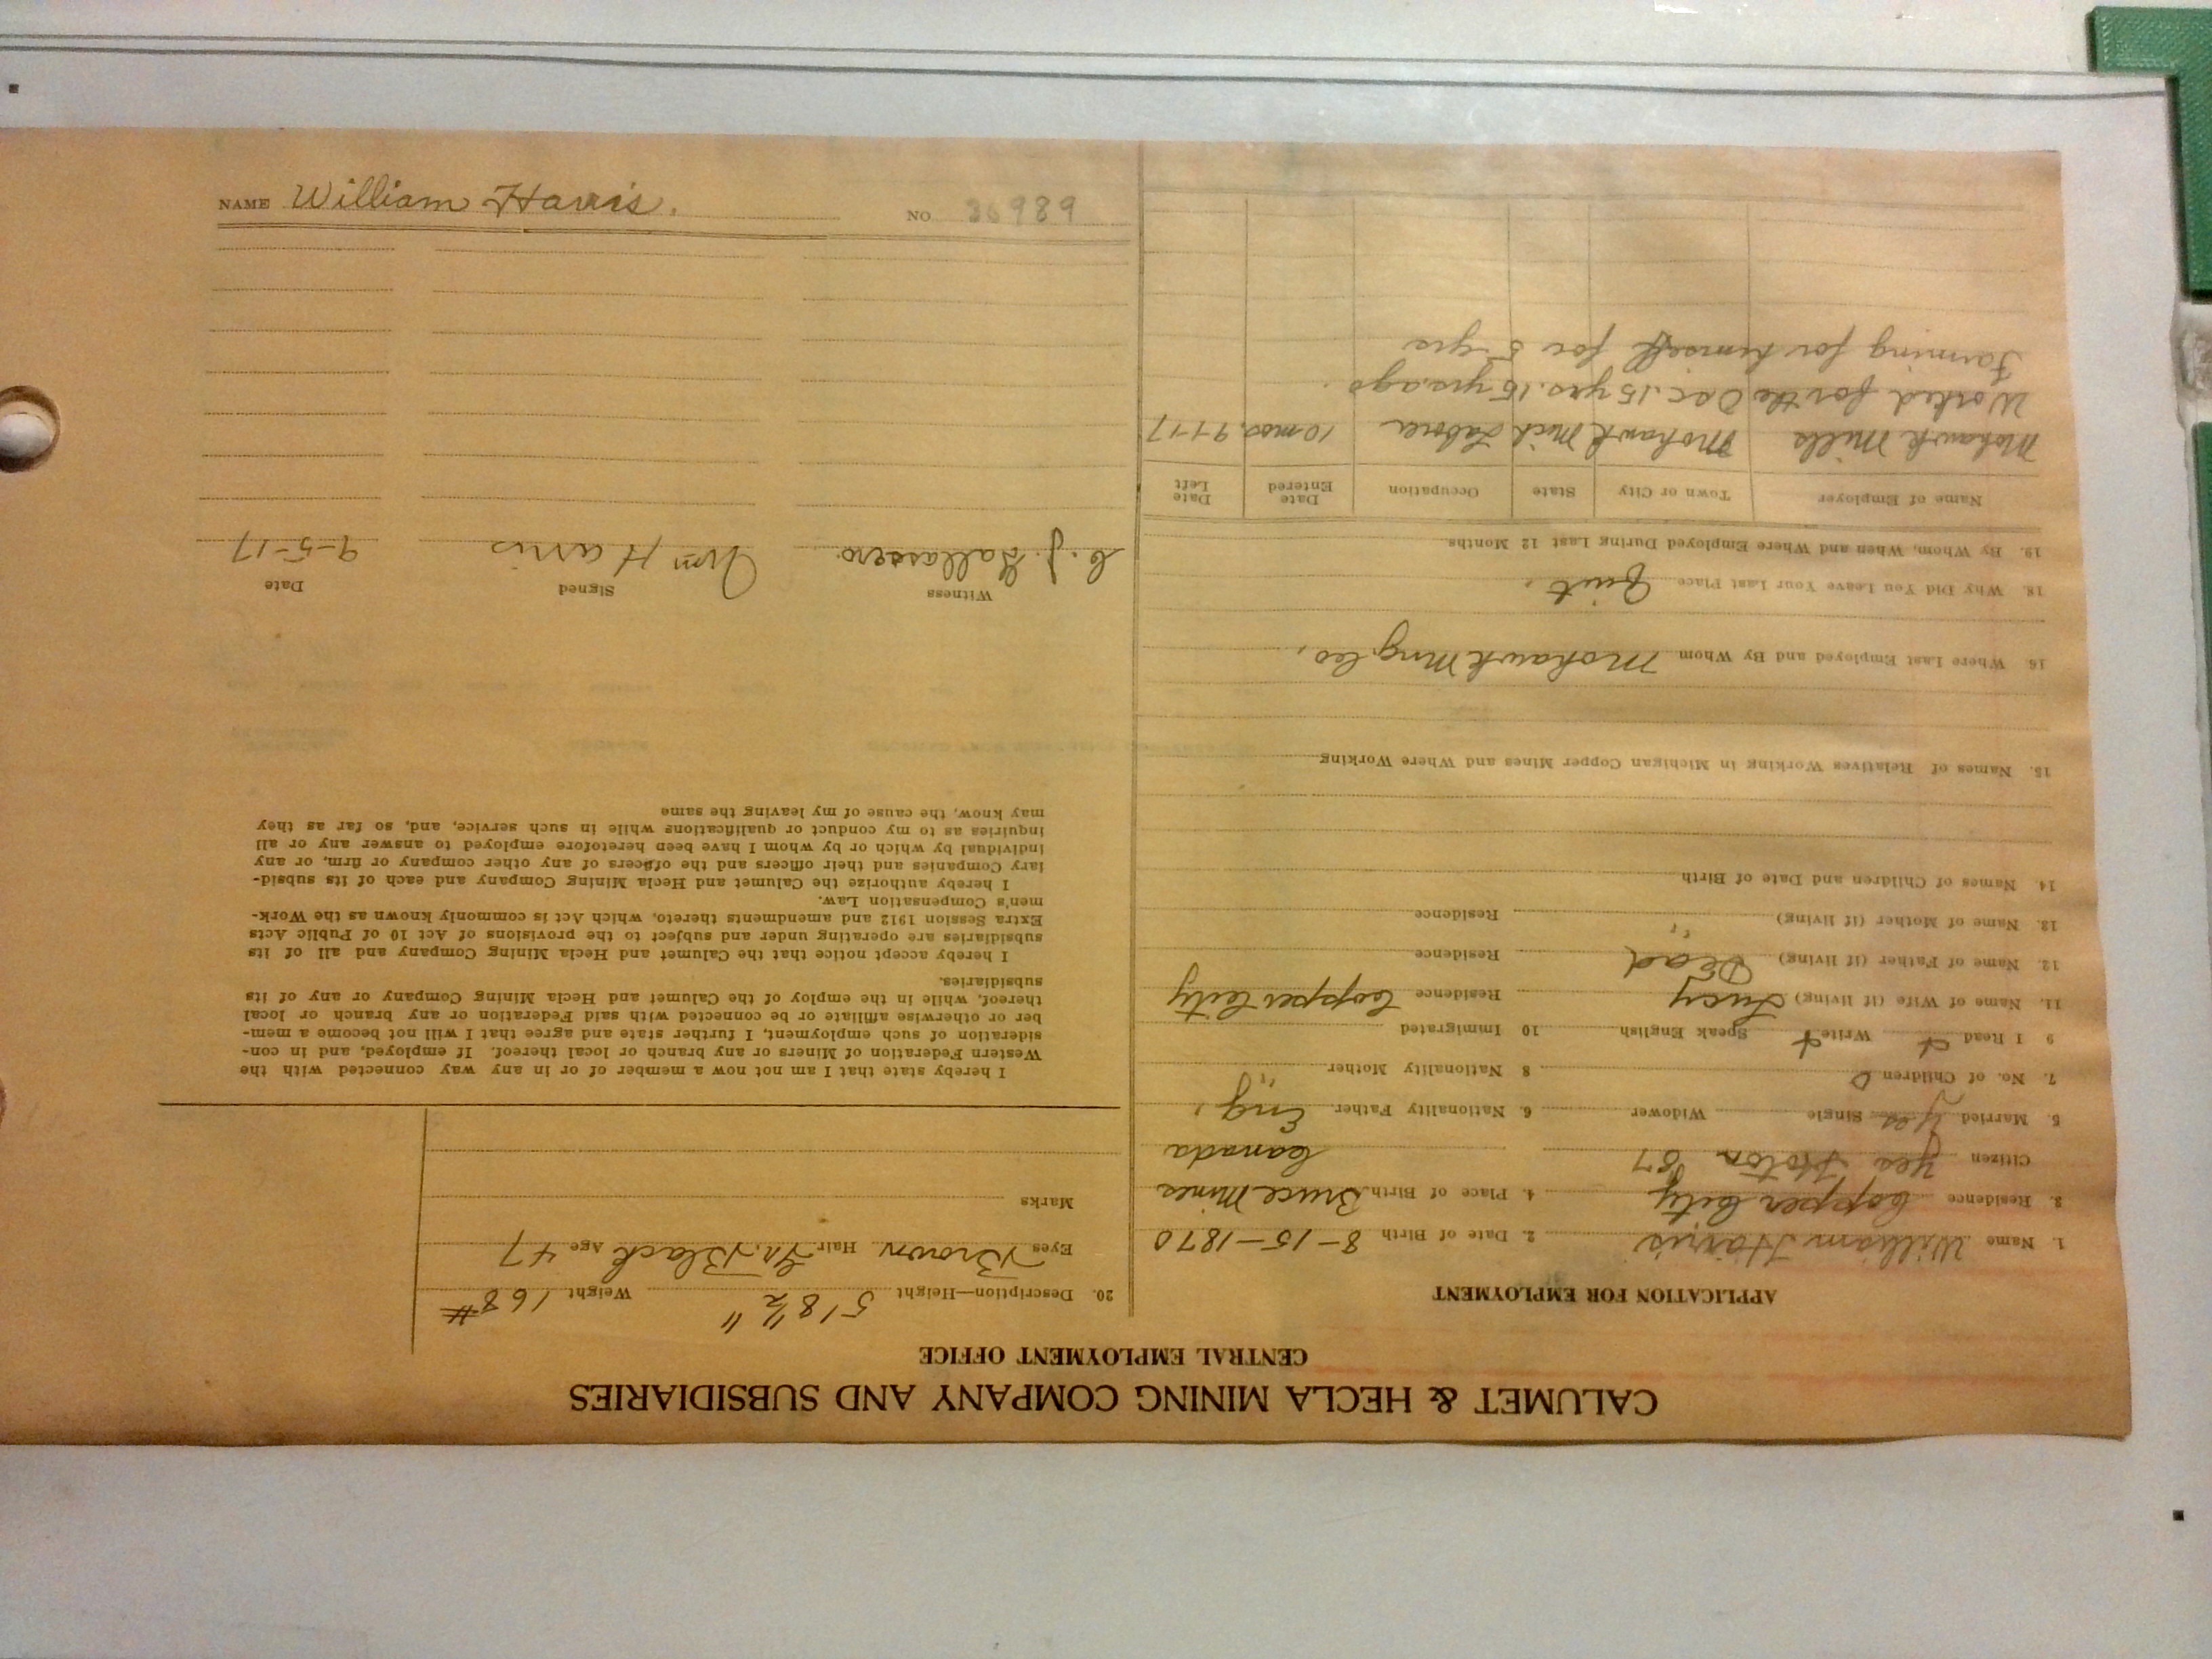 NAME William Harris. NO. 36989
CALUMET & HECLA MINING COMPANY AND SUBSIDIARIES
CENTRAL EMPLOYMENT OFFICE
APPLICATION FOR EMPLOYMENT
1. Name William Harris 2. Date of Birth 8-15-1870
3. Residence Copper City 4. Place of Birth Bruce Mines
Citizen Yes 87 Canada
5. Married Yes Single Widower 6. Nationality Father Eng.
7. No. of Children 0 8 Nationality Mother "
9 I Read + Write + Speak English 10 Immigrated
11. Name of Wife (if living) Lucy Residence Copper City
12. Name of Father (if living) Dead Residence
13. Name of Mother (if living) " Residence
14. Names of Children and Date of Birth
15. Names of Relatives Working in Michigan Copper Mines and Where Working
16. Where Last Employed and By Whom Mohawk Mng. Co.
18. Why Did You Leave Your Last Place Quit.
19. By Whom, When and Where Employed During Last 12 Months
Name of Employer Town or City State Occupation Date Entered Date Left
Mohawk Mills Mohawk Mich Laborer 10 mos. 9-1-17
Worked for the Osc. 15 yrs. 15 yrs. ago.
Farming for himself for 5 yrs
20. Description—Height 5' 8 1/2" Weight 168#
Eyes Brown Hair Gr. Black Age 47
Marks
I hereby state that I am not now a member of or in any way connected with the
Western Federation of Miners or any branch or local thereof. If employed, and in con-
sideration of such employment, I further state and agree that I will not become a mem-
ber or otherwise affiliate or be connected with said Federation or any branch or local
thereof, while in the employ of the Calumet and Hecla Mining Company or any of its
subsidiaries.
I hereby accept notice that the Calumet and Hecla Mining Company and all of its
subsidiaries are operating under and subject to the provisions of Act 10 of Public Acts
Extra Session 1912 and amendments thereto, which Act is commonly known as the Work-
men's Compensation Law.
I hereby authorize the Calumet and Hecla Mining Company and each of its subsid-
iary Companies and their officers and the officers of any other company or firm, or any
individual by which or by whom I have been heretofore employed to answer any or all
inquiries as to my conduct or qualifications while in such service, and, so far as they
may know, the cause of my leaving the same
Witness Signed Date
C. J. Wm Harris 9-5-17